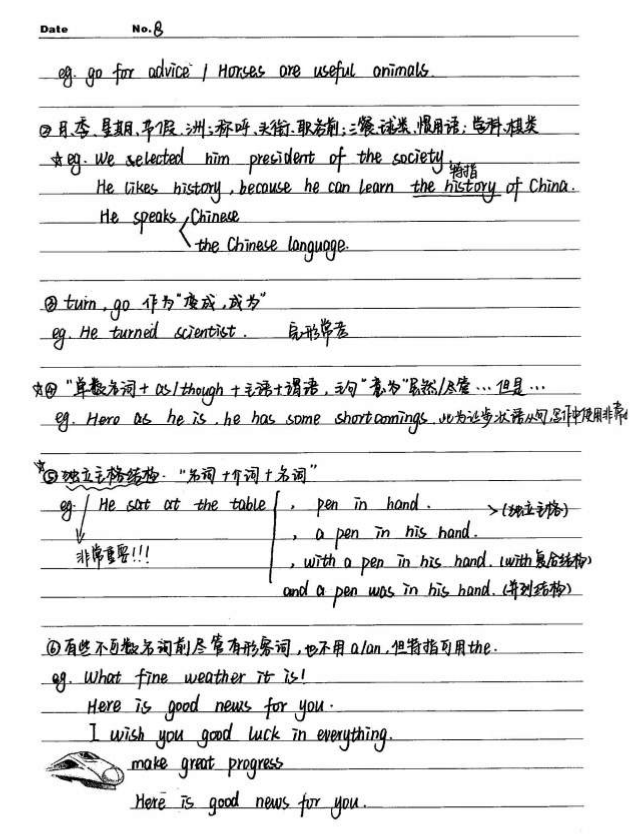 Date No. 8
eg. go for advice / Horses are useful animals.
② 月、季、星期、节假、洲;称呼、头衔、职务前;三餐、球类、惯用语;学科、棋类
☆ eg. We selected him president of the society.
特指
He likes history, because he can learn the history of China.
He speaks Chinese
the Chinese language.
③ turn, go 作为"变成,成为"
eg. He turned scientist. 完形常考
☆④ "单数名词 + as/though + 主语+谓语,主句"意为"虽然/尽管…但是…
eg. Hero as he is, he has some shortcomings. 此为让步状语从句,写作中使用非常
☆⑤ 独立主格结构. "名词+介词+名词"
eg. He sat at the table , pen in hand. >(独立主格)
, a pen in his hand.
非常重要!!! , with a pen in his hand. (with复合结构)
and a pen was in his hand. (并列结构)
⑥ 有些不可数名词前尽管有形容词,也不用 a/an,但特指可用the.
eg. What fine weather it is!
Here is good news for you.
I wish you good luck in everything.
make great progress
Here is good news for you.